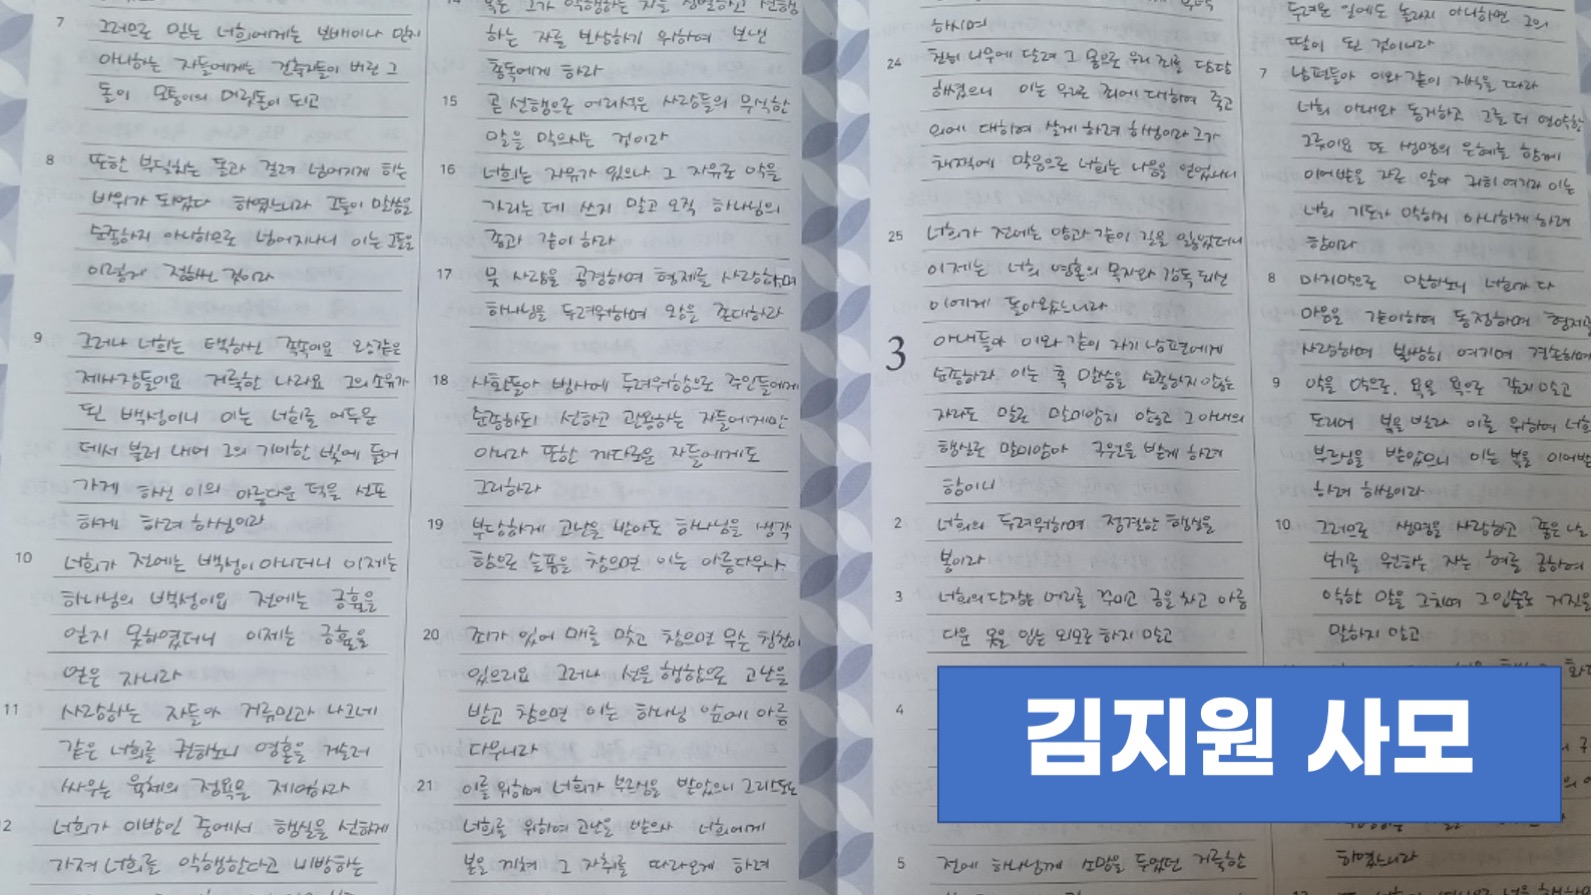 7 그러므로 믿는 너희에게는 보배이나 믿지
아니하는 자들에게는 건축자들이 버린 그
돌이 모퉁이의 머릿돌이 되고
8 또한 부딪치는 돌과 걸려 넘어지게 하는
바위가 되었다 하였느니라 그들이 말씀을
순종하지 아니하므로 넘어지나니 이는 그들을
이렇게 정하신 것이라
9 그러나 너희는 택하신 족속이요 왕같은
제사장들이요 거룩한 나라요 그의 소유가
된 백성이니 이는 너희를 어두운
데서 불러 내어 그의 기이한 빛에 들어
가게 하신 이의 아름다운 덕을 선포
하게 하려 하심이라
10 너희가 전에는 백성이 아니더니 이제는
하나님의 백성이요 전에는 긍휼을
얻지 못하였더니 이제는 긍휼을
얻은 자니라
11 사랑하는 자들아 거류민과 나그네
같은 너희를 권하노니 영혼을 거슬러
싸우는 육체의 정욕을 제어하라
12 너희가 이방인 중에서 행실을 선하게
가져 너희를 악행한다고 비방하는
14 혹은 그가 악행하는 자를 징벌하고 선행
하는 자를 포상하기 위하여 보낸
총독에게 하라
15 곧 선행으로 어리석은 사람들의 무식한
말을 막으시는 것이라
16 너희는 자유가 있으나 그 자유로 악을
가리는 데 쓰지 말고 오직 하나님의
종과 같이 하라
17 뭇 사람을 공경하며 형제를 사랑하며
하나님을 두려워하며 왕을 존대하라
18 사환들아 범사에 두려워함으로 주인들에게
순종하되 선하고 관용하는 자들에게만
아니라 또한 까다로운 자들에게도
그리하라
19 부당하게 고난을 받아도 하나님을 생각
함으로 슬픔을 참으면 이는 아름다우나
20 죄가 있어 매를 맞고 참으면 무슨 칭찬이
있으리요 그러나 선을 행함으로 고난을
받고 참으면 이는 하나님 앞에 아름
다우니라
21 이를 위하여 너희가 부르심을 받았으니 그리스도도
너희를 위하여 고난을 받으사 너희에게
본을 끼쳐 그 자취를 따라오게 하려
하시며
24 친히 나무에 달려 그 몸으로 우리 죄를 담당
하셨으니 이는 우리로 죄에 대하여 죽고
의에 대하여 살게 하려 하심이라 그가
채찍에 맞음으로 너희는 나음을 얻었나니
25 너희가 전에는 양과 같이 길을 잃었더니
이제는 너희 영혼의 목자와 감독 되신
이에게 돌아왔느니라
3 아내들아 이와 같이 자기 남편에게
순종하라 이는 혹 말씀을 순종하지 않는
자라도 말로 말미암지 않고 그 아내의
행실로 말미암아 구원을 받게 하려
함이니
2 너희의 두려워하며 정결한 행실을
봄이라
3 너희의 단장은 머리를 꾸미고 금을 차고 아름
다운 옷을 입는 외모로 하지 말고
4
5 전에 하나님께 소망을 두었던 거룩한
두려운 일에도 놀라지 아니하면 그의
딸이 된 것이니라
7 남편들아 이와 같이 지식을 따라
너희 아내와 동거하고 그를 더 연약한
그릇이요 또 생명의 은혜를 함께
이어받을 자로 알아 귀히 여기라 이는
너희 기도가 막히지 아니하게 하려
함이라
8 마지막으로 말하노니 너희가 다
마음을 같이하여 동정하며 형제를
사랑하며 불쌍히 여기며 겸손하며
9 악을 악으로, 욕을 욕으로 갚지 말고
도리어 복을 빌라 이를 위하여 너희
부르심을 받았으니 이는 복을 이어받
하려 하심이라
10 그러므로 생명을 사랑하고 좋은 날
보기를 원하는 자는 혀를 금하여
악한 말을 그치며 그 입술로 거짓을
말하지 말고
하였느니라
김지원 사모